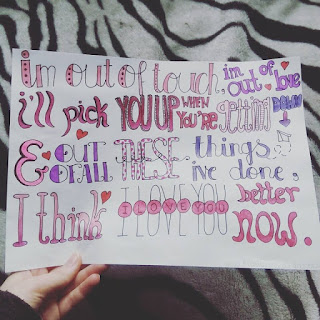 im out of touch, im out of love
i'll pick YOU UP WHEN YOU'RE getting DOWN
& OUT OF ALL THESE things i've done,
I think I LOVE YOU better now.